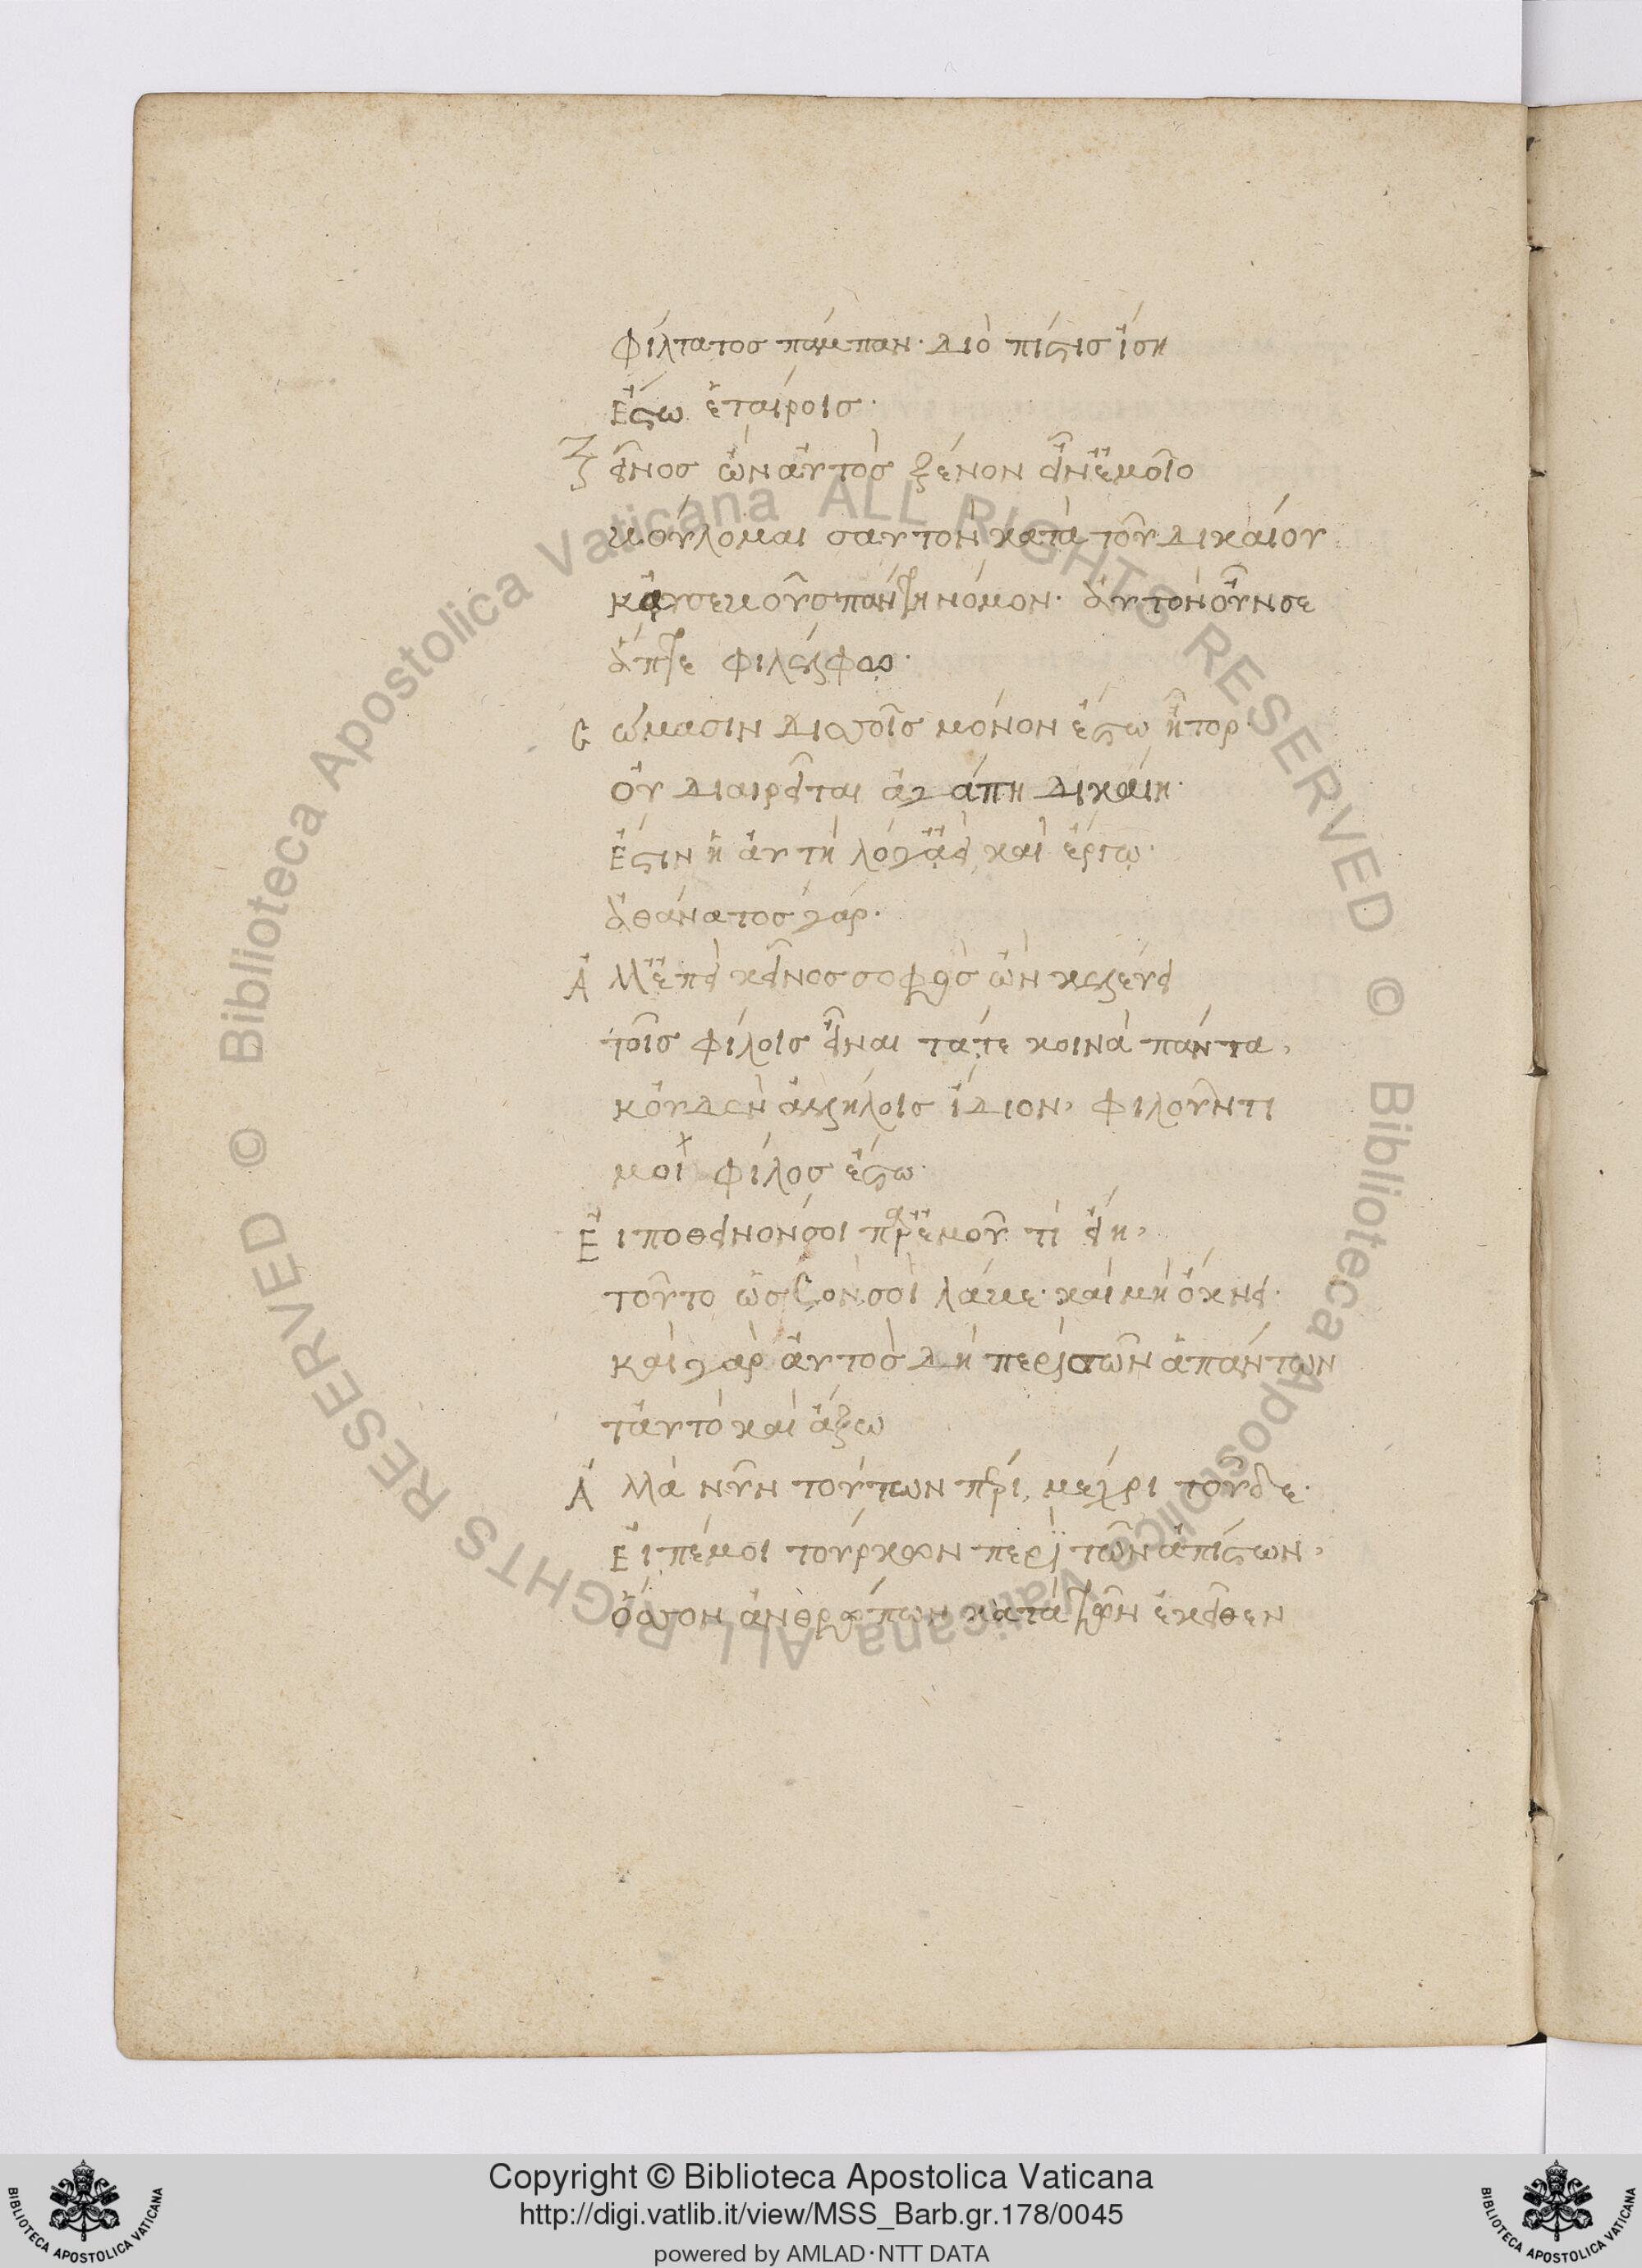 φίλτατος πάμπαν· διὸ πίστις ἴση
ἔστω ἑταίροις·
Ξεῖνος ὢν αὐτὸς ξένον εἷν ἐμοῖο
βούλομαι σαυτὸν κατὰ τοῦ δικαίου
καὐσεβοῦς πάντη νόμον· αὐτὸν οὖν σε
ἄττε φίλελφο·
Σώμασιν δισσοῖς μόνον ἔστω ἦτορ·
οὐ διαιρεῖται ἀγάπη δικαίη·
ἔστιν ἡ αὐτὴ λόγῳ ἀεὶ καὶ ἔργῳ·
ἀθάνατος γάρ·
Ἀλλ' ἐπεὶ κεῖνος σοφὸς ὢν κελεύει
τοῖς φίλοις εἶναι τά τε κοινὰ πάντα,
κοὐδὲν ἀλλήλοις ἴδιον, φιλοῦντι
μοὶ φίλος ἔστω·
Εἰ ποθεινόν σοι παρ' ἐμοῦ τι εἴη,
τοῦτο ὡς σὸν σοὶ λάβε· καὶ μὴ ὄκνει·
καὶ γὰρ αὐτὸς δὴ περὶ σῶν ἁπάντων
ταὐτὸ καὶ ἄξω
Ἀλλὰ νῦν τούτων πέρι, μέχρι τοῦδε·
εἰπέ μοι τούρκων περὶ τῶν ἀπίστων,
ὅσσον ἀνθρώπων κατὰ γῆν ἐκεῖθεν
Copyright © Biblioteca Apostolica Vaticana
http://digi.vatlib.it/view/MSS_Barb.gr.178/0045
powered by AMLAD·NTT DATA
BIBLIOTECA APOSTOLICA VATICANA
BIBLIOTECA APOSTOLICA VATICANA
© Biblioteca Apostolica Vaticana ALL RIGHTS RESERVED © Biblioteca Apostolica Vaticana ALL RIGHTS RESERVED